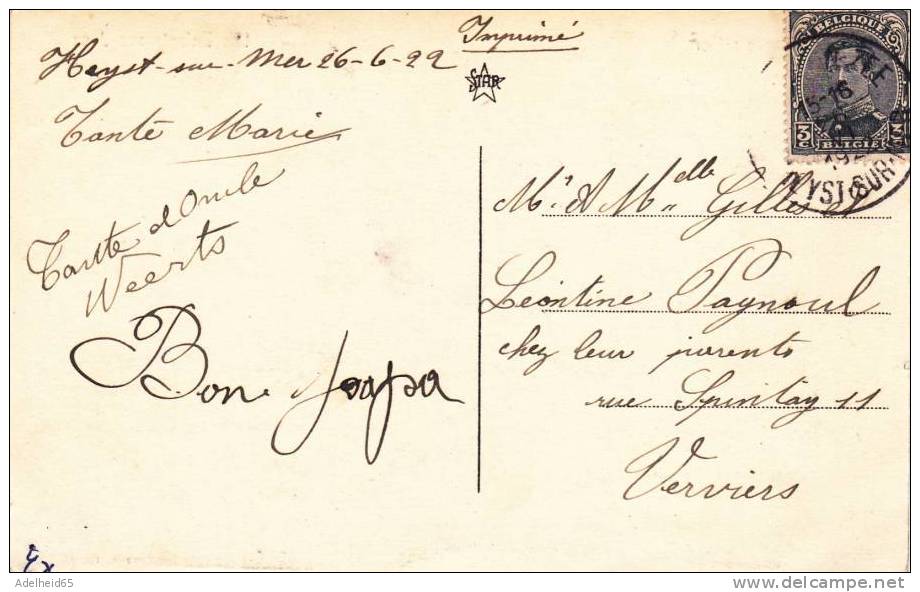 Imprimé
Heyst-sur-Mer 26-6-22
STAR
Tante Marie
Tante & Oncle
Weerts
Bon Papa
BELGIQUE
3 C 3 C
BELGIË
15-16
19
HEYST-SUR-
Mr & Melle Gilles et
Léontine Pagnoul
chez leur parents
rue Spintay 11
Verviers
Adelheid65
delcampe.net